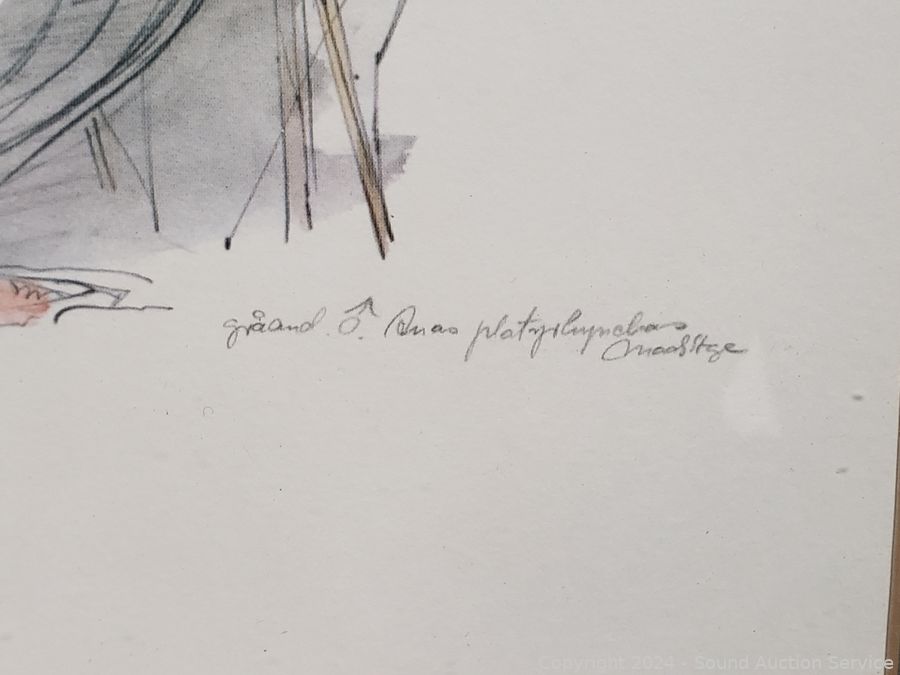 gråand. ♂. Anas platyrhynchos
Mads Stage
Copyright 2024 - Sound Auction Service